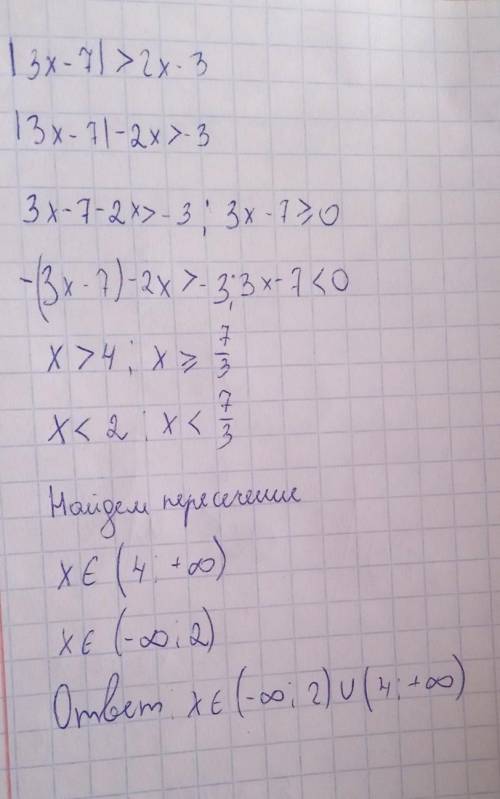 |3x-7|>2x-3
|3x-7|-2x>-3
3x-7-2x>-3; 3x-7≥0
-(3x-7)-2x>-3; 3x-7<0
x>4; x≥7/3
x<2; x<7/3
Найдем пересечение
x∈(4;+∞)
x∈(-∞;2)
Ответ: x∈(-∞;2)∪(4;+∞)